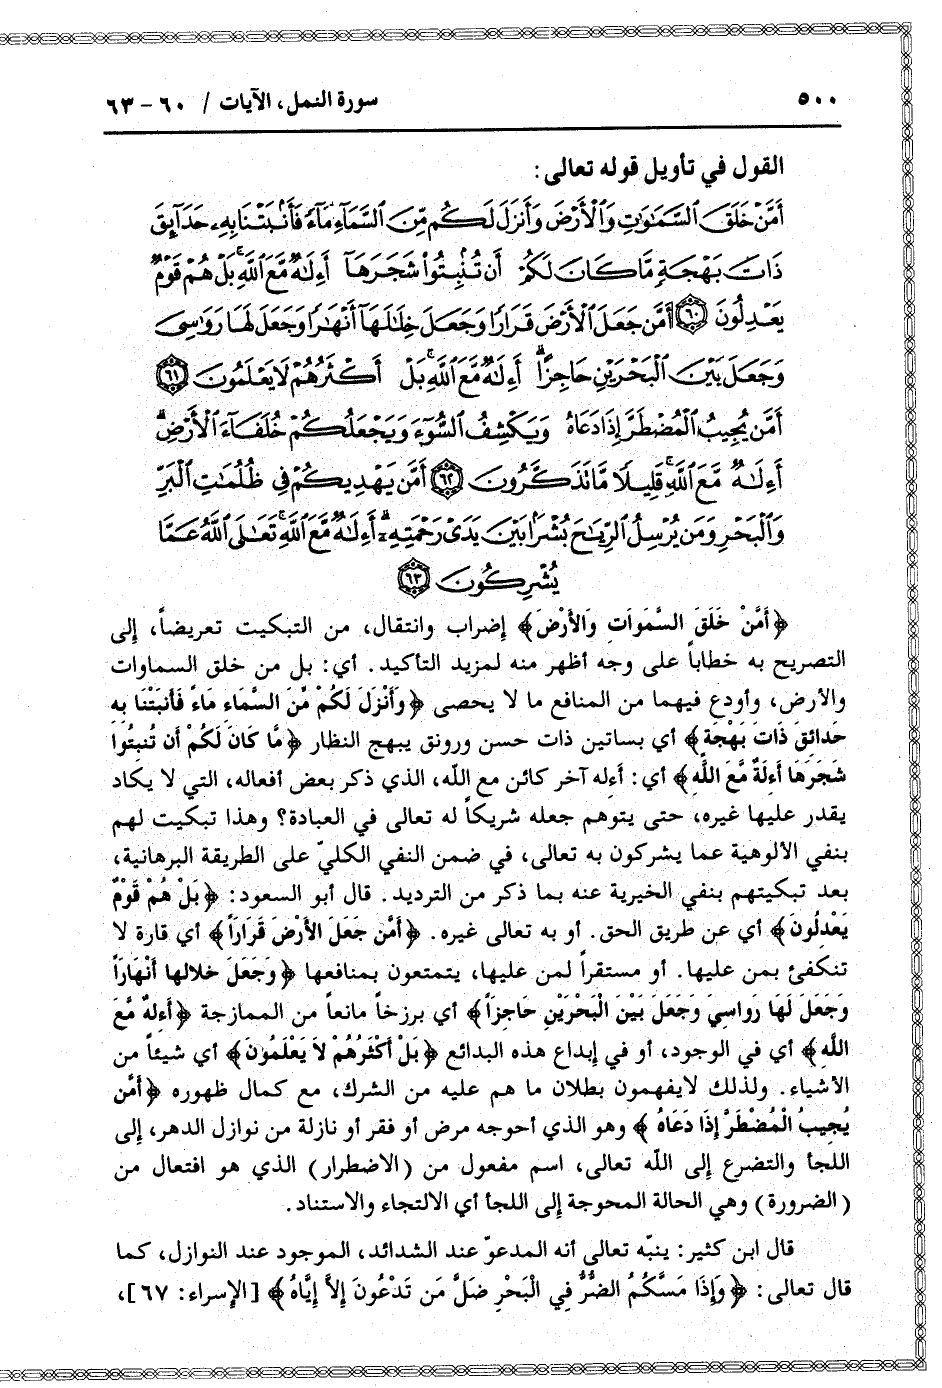 ٥٠٠
سورة النمل، الآيات / ٦٠ - ٦٣
القول في تأويل قوله تعالى:
أَمَّنْ خَلَقَ ٱلسَّمَٰوَٰتِ وَٱلْأَرْضَ وَأَنزَلَ لَكُم مِّنَ ٱلسَّمَآءِ مَآءً فَأَنۢبَتْنَا بِهِۦ حَدَآئِقَ
ذَاتَ بَهْجَةٍ مَّا كَانَ لَكُمْ أَن تُنۢبِتُوا۟ شَجَرَهَآ أَءِلَٰهٌ مَّعَ ٱللَّهِ بَلْ هُمْ قَوْمٌ
يَعْدِلُونَ ٦٠ أَمَّن جَعَلَ ٱلْأَرْضَ قَرَارًا وَجَعَلَ خِلَٰلَهَآ أَنْهَٰرًا وَجَعَلَ لَهَا رَوَٰسِىَ
وَجَعَلَ بَيْنَ ٱلْبَحْرَيْنِ حَاجِزًا أَءِلَٰهٌ مَّعَ ٱللَّهِ بَلْ أَكْثَرُهُمْ لَا يَعْلَمُونَ ٦١
أَمَّن يُجِيبُ ٱلْمُضْطَرَّ إِذَا دَعَاهُ وَيَكْشِفُ ٱلسُّوٓءَ وَيَجْعَلُكُمْ خُلَفَآءَ ٱلْأَرْضِ
أَءِلَٰهٌ مَّعَ ٱللَّهِ قَلِيلًا مَّا تَذَكَّرُونَ ٦٢ أَمَّن يَهْدِيكُمْ فِى ظُلُمَٰتِ ٱلْبَرِّ
وَٱلْبَحْرِ وَمَن يُرْسِلُ ٱلرِّيَٰحَ بُشْرًۢا بَيْنَ يَدَىْ رَحْمَتِهِۦٓ أَءِلَٰهٌ مَّعَ ٱللَّهِ تَعَٰلَى ٱللَّهُ عَمَّا
يُشْرِكُونَ ٦٣
﴿أَمَّنْ خَلَقَ السَّمَوَاتِ وَالأَرْضَ﴾ إضراب وانتقال، من التبكيت تعريضاً، إلى
التصريح به خطاباً على وجه أظهر منه لمزيد التأكيد. أي: بل من خلق السماوات
والأرض، وأودع فيهما من المنافع ما لا يحصى ﴿وَأَنْزَلَ لَكُمْ مِّنَ السَّمَاءِ مَاءً فَأَنبَتْنَا بِهِ
حَدائِقَ ذَاتَ بَهْجَةٍ﴾ أي بساتين ذات حسن ورونق يبهج النظار ﴿مَّا كَانَ لَكُمْ أَن تُنبِتُوا
شَجَرَهَا أَءِلَهٌ مَّعَ اللَّهِ﴾ أي: أءله آخر كائن مع الله، الذي ذكر بعض أفعاله، التي لا يكاد
يقدر عليها غيره، حتى يتوهم جعله شريكاً له تعالى في العبادة؟ وهذا تبكيت لهم
بنفي الألوهية عما يشركون به تعالى، في ضمن النفي الكليّ على الطريقة البرهانية،
بعد تبكيتهم بنفي الخيرية عنه بما ذكر من الترديد. قال أبو السعود: ﴿بَلْ هُمْ قَوْمٌ
يَعْدِلُونَ﴾ أي عن طريق الحق. أو به تعالى غيره. ﴿أَمَّن جَعَلَ الأَرْضَ قَرَاراً﴾ أي قارة لا
تنكفئ بمن عليها. أو مستقراً لمن عليها، يتمتعون بمنافعها ﴿وَجَعَلَ خلالها أَنْهَاراً
وَجَعَلَ لَهَا رَواسِيَ وَجَعَلَ بَيْنَ الْبَحْرَيْنِ حَاجِزاً﴾ أي برزخاً مانعاً من الممازجة ﴿أَءِلهٌ مَّعَ
اللَّهِ﴾ أي في الوجود، أو في إبداع هذه البدائع ﴿بَلْ أَكْثَرُهُمْ لاَ يَعْلَمُونَ﴾ أي شيئاً من
الأشياء. ولذلك لايفهمون بطلان ما هم عليه من الشرك، مع كمال ظهوره ﴿أَمَّن
يُجِيبُ الْمُضْطَرَّ إِذَا دَعَاهُ﴾ وهو الذي أحوجه مرض أو فقر أو نازلة من نوازل الدهر، إلى
اللجأ والتضرع إلى الله تعالى، اسم مفعول من (الاضطرار) الذي هو افتعال من
(الضرورة) وهي الحالة المحوجة إلى اللجأ أي الالتجاء والاستناد.
قال ابن كثير: ينبّه تعالى أنه المدعوّ عند الشدائد، الموجود عند النوازل، كما
قال تعالى: ﴿وَإِذَا مَسَّكُمُ الضُّرُّ فِي الْبَحْرِ ضَلَّ مَن تَدْعُونَ إِلاَّ إِيَّاهُ﴾ [الإسراء: ٦٧]،